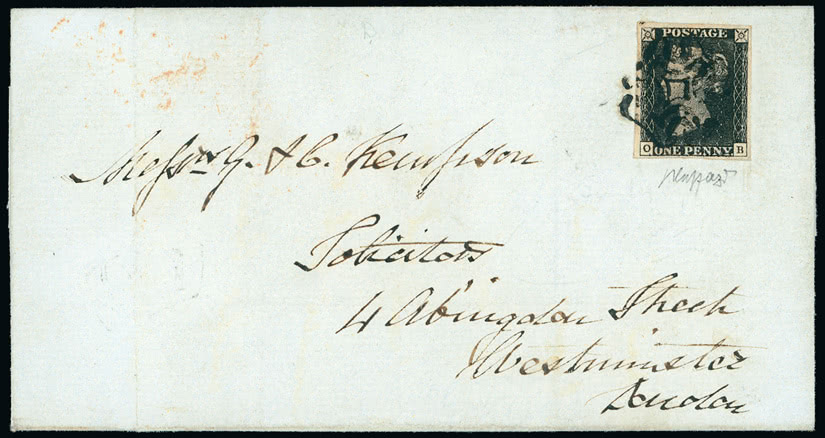 POSTAGE
O ONE PENNY B
Messrs G. & C. Kempson
Solicitors
4 Abingdon Street
Westminster
London